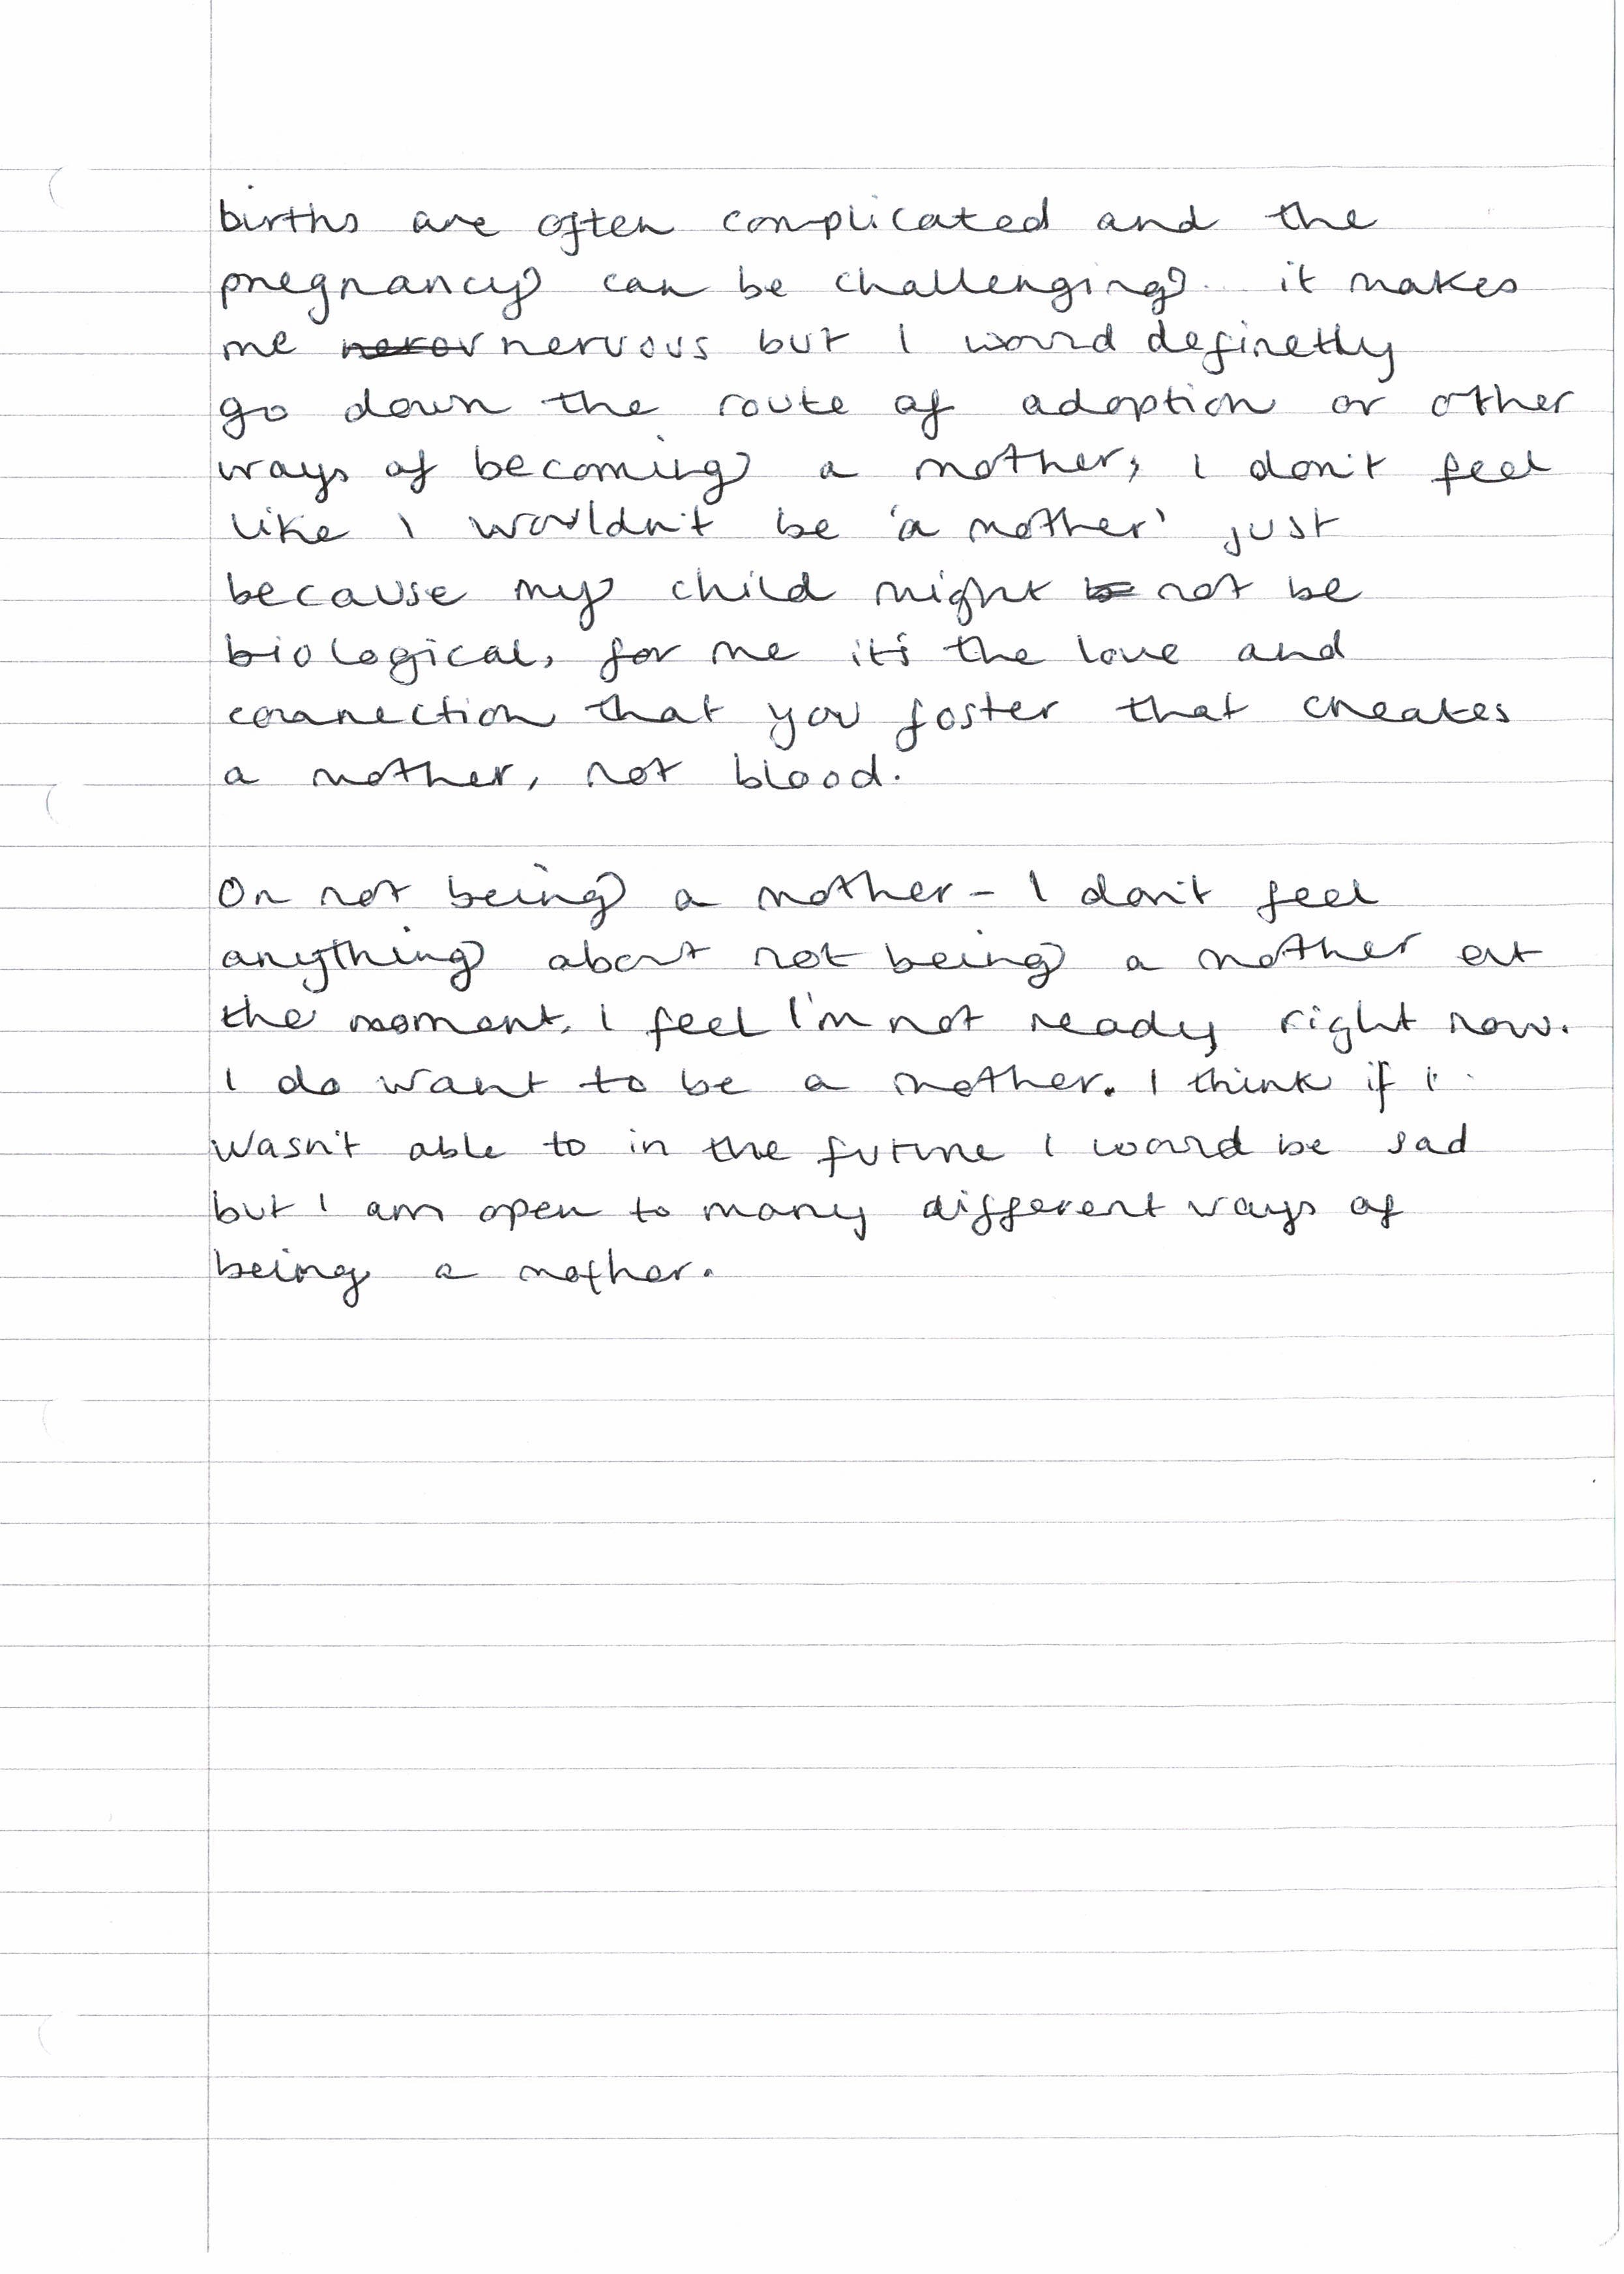 births are often complicated and the
pregnancy can be challenging. it makes
me nerov nervous but I would definetly
go down the route of adoption or other
ways of becoming a mother, I don't feel
like I wouldn't be 'a mother' just
because my child might be not be
biological, for me it's the love and
connection that you foster that creates
a mother, not blood.
On not being a mother - I don't feel
anything about not being a mother at
the moment. I feel I'm not ready right now.
I do want to be a mother. I think if I
wasn't able to in the future I would be sad
but I am open to many different ways of
being a mother.